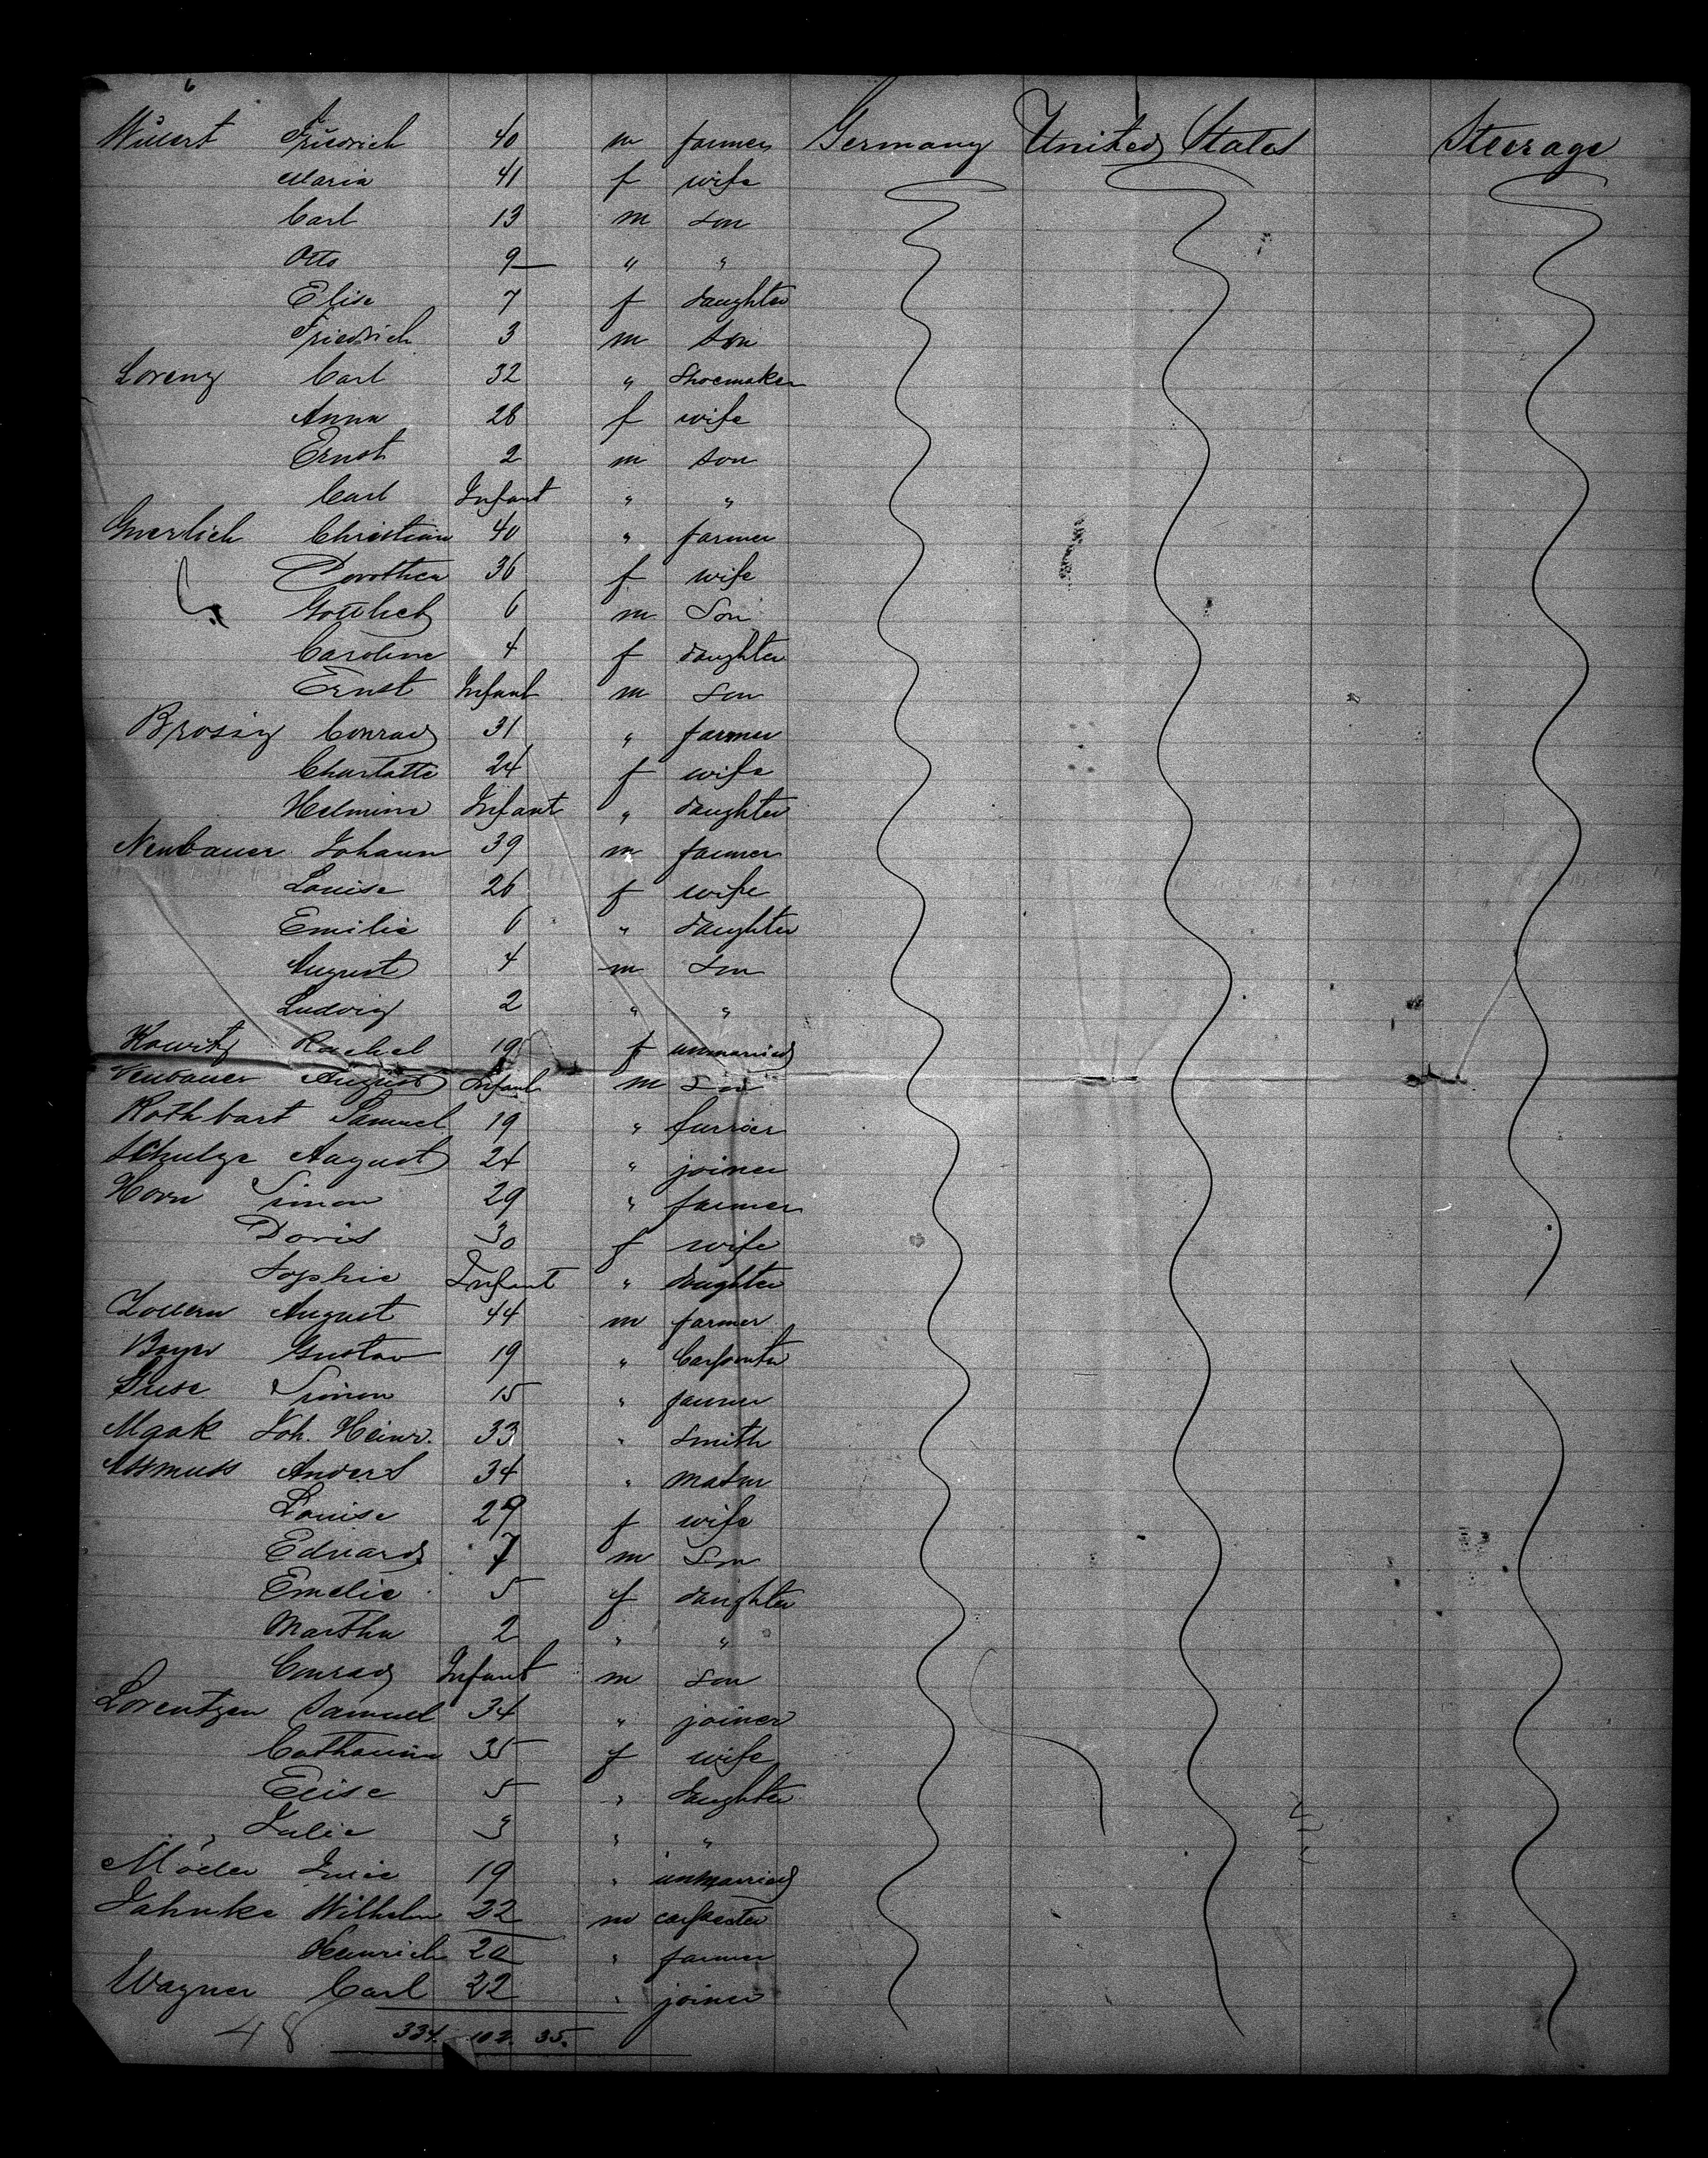 6
Friedrich 40 m farmer Germany United States Steerage
Maria 41 f wife
Carl 13 m son
Otto 9 " "
Elise 7 f daughter
Friedrich 3 m son
Lorenz Carl 32 " Shoemaker
Anna 28 f wife
Ernst 2 m son
Carl Infant " "
Christian 40 " farmer
Dorothea 36 f wife
Gottlieb 6 m Son
Caroline 4 f daughter
Ernst Infant m son
Brosig Conrad 31 " farmer
Charlotte 24 f wife
Helmine Infant " daughter
Neubauer Johann 39 m farmer
Louise 26 f wife
Emilie 6 " daughter
August 4 m son
Ludwig 2 " "
Rachel 19 f unmarried
Neubauer August Infant m son
Rothbart Samuel 19 " furrier
Schulze August 24 " joiner
Horn Simon 29 " farmer
Doris 30 f wife
Sophie Infant " daughter
August 44 m farmer
Gustav 19 " Carpenter
Simon 15 " farmer
Maak Joh. Heinr. 33 " Smith
Assmuss Anders 34 "
Louise 29 f wife
Eduard 7 m Son
Emelie 5 f daughter
Martha 2 " "
Conrad Infant m son
Lorentzen Samuel 34 " joiner
Catharine 35 f wife
Elise 5 " daughter
Julie 3 " "
19 " unmarried
Jahnke Wilhelm 22 m carpenter
Heinrich 20 " farmer
Wagner Carl 22 " joiner
48 334. 102. 35.